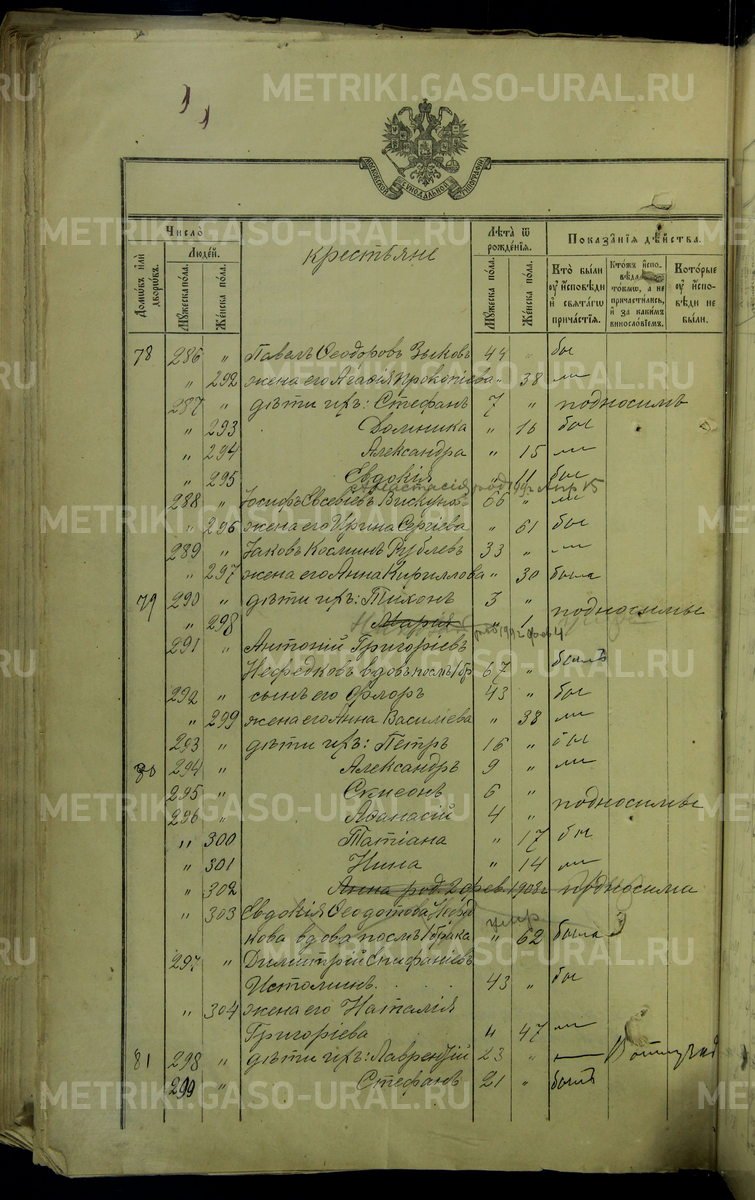 METRIKI.GASO-URAL.RU
МОСКОВСКОЙ СѴНОДАЛЬНОЙ ТѴПОГРАФІИ
Число̀
Домѡвъ и҆лѝ дворѡвъ.
Люде́й.
Мꙋжеска по́ла.
Же́нска по́ла.
крестьяне
Лѣ́та ѿ рожде́нїѧ.
Мꙋжеска по́ла.
Же́нска по́ла.
Показа̑нїѧ дѣ́йства.
Кто̀ бы́ли ᲂу҆ и҆сповѣди и҆ свѧта́гѡ прича́стїѧ.
Кто́жъ и҆спо-вѣда то́кмѡ, а҆ не причасти́лись, и҆ за каки́мъ винослові́емъ.
Кото́рые ᲂу҆ и҆спо-вѣди не бы́ли.
78 286 " Павелъ Ѳеодоровъ Зыковъ 44 " бы
" 292 жена его Агаѳія Прокопіева " 38 ли
287 " дѣти ихъ: Стефанъ 7 " подносимъ
" 293 Домника " 16 бы
" 294 Александра " 15 ли
" 295 Евдокія " 11 бы
Анастасія род
288 " Іосифъ Евсевіевъ 66 " ли
" 296 жена его Ирина Сергіева " 61 бы
289 " Іаковъ Косминъ Рублевъ 33 " ли
" 297 жена его Анна Кириллова " 30 была
79 290 " дѣти ихъ: Тихонъ 3 "
" 298 Марія " 1 подносимые
291 " Антоній Григоріевъ
Нефедковъ вдовъ посмъ 1 бр 67 " былъ
292 " сынъ его Флоръ 43 " бы
" 299 жена его Анна Василіева " 38 ли
293 " дѣти ихъ: Петръ 16 " бы
80 294 " Александръ 9 " ли
295 " Симеонъ 6 "
296 " Аѳанасій 4 " подносимые
" 300 Татіана " 17 бы
" 301 Нина " 14 ли
" 302 Анна род. 2 фев. 1908 г подносима
" 303 Евдокія Ѳеодотова
нова вдова посмъ 1 брака " 62 была 3
297 " Димитрій Стефаніевъ
Истоминъ. 43 " бы
" 304 жена его Наталія
Григоріева " 47 ли
81 298 " дѣти ихъ: Лаврентій 23 "
299 " Стефанъ 21 " былъ